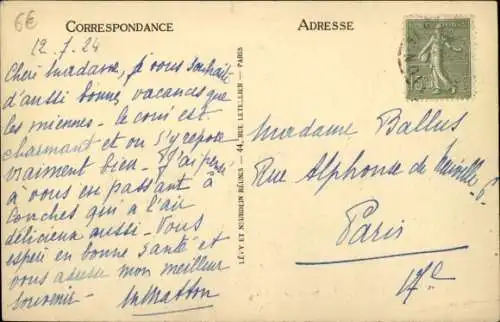 6€
CORRESPONDANCE
12.7.24
Chère Madame, je vous souhaite
d'aussi bonnes vacances que
les miennes. Le coin est
charmant et on s'y repose
vraiment bien. J'ai pensé
à vous en passant à
Conches qui a l'air
délicieux aussi. Vous
espère en bonne santé et
vous adresse mon meilleur
souvenir.
LÉVY ET NEURDEIN RÉUNIS - 44, RUE LETELLIER - PARIS
ADRESSE
Madame Ballus
Rue Alphonse de Neuville
Paris
17e